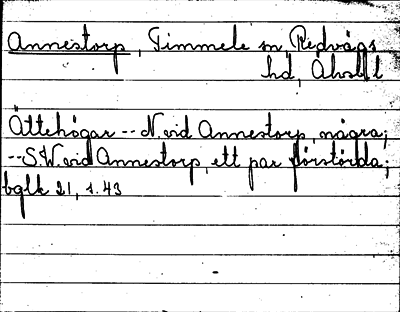 Annestorp, Timmele sn Redvägs
hd, Älvsb l
Ättehögar -- N. vid Annestorp, några;
-- S.W. vid Annestorp, ett par förstörda;
bglk 21, s. 43